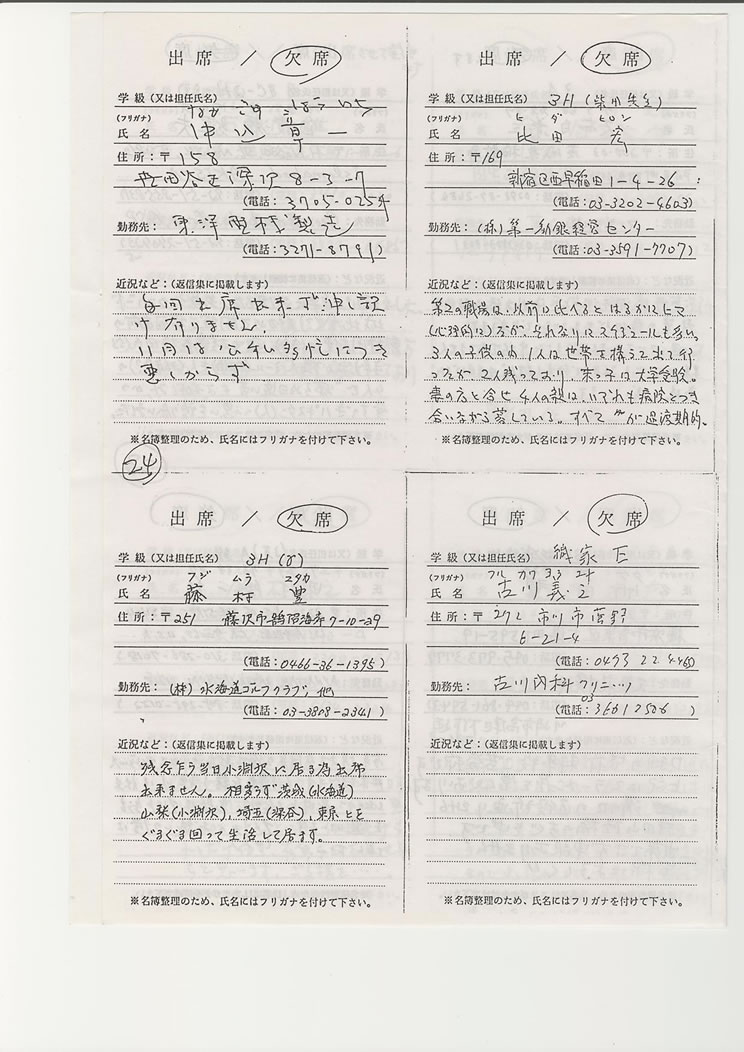 出席 / 欠席
学級（又は担任氏名）
（フリガナ）
氏名 一
住所：〒158
世田谷区深沢8-3-7
（電話：3705-0254）
勤務先：東洋
（電話：3271-8791）
近況など：（返信集に掲載します）
毎回出席出来ず申し訳
け有りません。
11月は公私多忙につき
悪しからず
※名簿整理のため、氏名にはフリガナを付けて下さい。
24
出席 / 欠席
学級（又は担任氏名） 3H（柴田先生）
（フリガナ） ヒ ダ ヒロシ
氏名 比田 宏
住所：〒169
新宿区西早稲田1-4-26
（電話：03-3202-4603）
勤務先：（株）第一勧銀経営センター
（電話：03-3591-7707）
近況など：（返信集に掲載します）
第2の職場は、以前に比べるとはるかにヒマ
（心理的に）だが、それなりにスケジュールも多い。
3人の子供の内1人は世帯を構えて出て行
ったが、2人残っており、末っ子は大学受験。
妻の方と合せ4人の親は、いづれも病院とつき
合いながら暮している。すべて〃が過渡期的。
※名簿整理のため、氏名にはフリガナを付けて下さい。
出席 / 欠席
学級（又は担任氏名） 3H
（フリガナ） フジ ムラ ユタカ
氏名 藤村 豊
住所：〒251 藤沢市鵠沼海岸7-10-29
（電話：0466-36-1395）
勤務先：（株）水海道ゴルフクラブ 他
（電話：03-3808-2341）
近況など：（返信集に掲載します）
残念乍ら当日小淵沢に居る為出席
出来ません。相変らず茨城（水海道）
山梨（小淵沢）、埼玉（深谷）、東京とを
ぐるぐる回って生活して居ます。
※名簿整理のため、氏名にはフリガナを付けて下さい。
出席 / 欠席
学級（又は担任氏名） E
（フリガナ） フル カワ
氏名 古川義
住所：〒272 市川市菅野
6-21-4
（電話：0473 22 4460）
勤務先：古川内科クリニック
（電話：03 36612506）
近況など：（返信集に掲載します）
※名簿整理のため、氏名にはフリガナを付けて下さい。